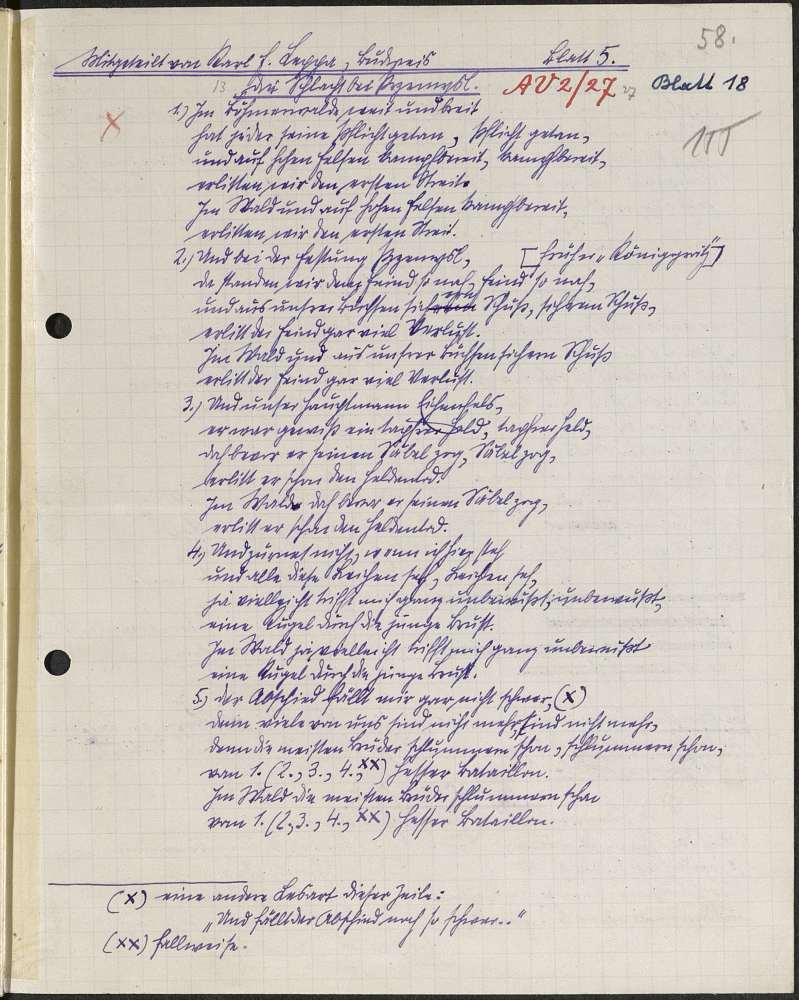 58.
Mitgeteilt von Karl F. Leppa, Budweis Blatt 5.
13 Die Schlacht bei Przemysl. AV 2/27 Blatt 18
1.) Im Böhmerwalde weit und breit
hat jeder seine Pflicht getan, Pflicht getan,
und auf hohen Felsen kampfbereit, kampfbereit,
erlitten wir den ersten Streit.
Im Wald und auf hohen Felsen kampfbereit,
erlitten wir den ersten Streit.
2.) Und bei der Festung Przemysl, [früher "Königgrätz"]
da standen wir dem Feind so nah, Feind so nah,
und aus unsrer Büchsen sichern Schuß, sichern Schuß,
erlitt der Feind gar viel Verlust.
Im Wald und aus unsrer Büchsen sichern Schuß
erlitt der Feind gar viel Verlust.
3.) Und unser Hauptmann Eichenfels,
er war gewiß ein tapfrer Held, tapfrer Held,
doch bevor er seinen Säbel zog, Säbel zog,
erlitt er schon den Heldentod.
Im Wald doch bevor er seinen Säbel zog,
erlitt er schon den Heldentod.
4.) Und zürnet nicht, wenn ich hier steh
und alle diese Leichen seh, Leichen seh,
ja vielleicht trifft mich ganz unbewußt, unbewußt,
eine Kugel durch die junge Brust.
Im Wald ja vielleicht trifft mich ganz unbewußt
eine Kugel durch die junge Brust.
5.) Der Abschied fällt mir gar nicht schwer, (x)
denn viele von uns sind nicht mehr, sind nicht mehr,
denn die meisten Brüder schlummern schon, schlummern schon,
vom 1. (2., 3., 4., xx) Hesser Bataillon.
Im Wald die meisten Brüder schlummern schon
vom 1. (2., 3., 4., xx) Hesser Bataillon.
(x) eine andere Lesart dieser Zeile:
"Und fällt der Abschied noch so schwer.."
(xx) fallweise.